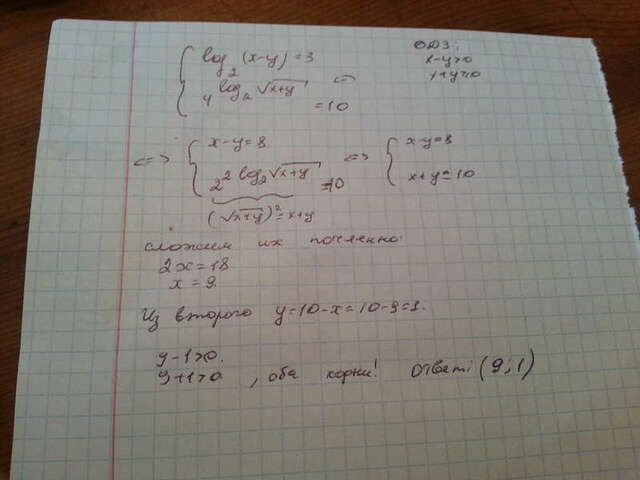 log₂ (x-y) = 3
4^(log₂ √(x+y)) = 10 <=>
ОДЗ:
x-y>0
<=> x-y=8
2^(2 log₂ √(x+y)) = 10 <=>
(√(x+y))² = x+y
x-y=8
x+y=10
сложим их почленно:
2x=18
x=9.
Из второго y=10-x=10-9=1.
9-1>0.
9+1>0, оба корни! Ответ: (9;1)